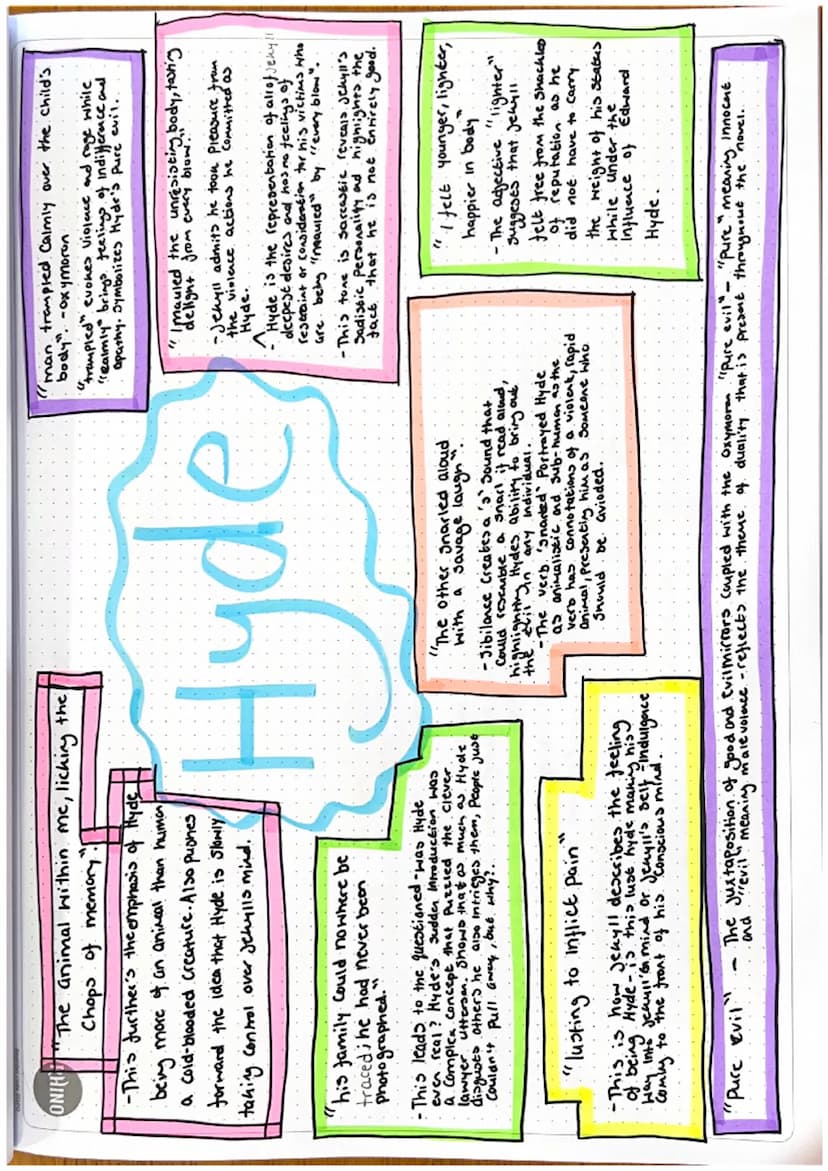 "The animal within me, licking the
chops of memory."
-This further's the emphasis of Hyde
being more of an animal than human
a cold-blooded creature. Also pushes
forward the idea that Hyde is slowly
taking control over Jekylls mind.
"man trampled calmly over the child's
body". -oxymoron
"trampled" evokes violence and rage while
"calmly" brings feelings of indifference and
apathy. Symbolizes Hyde's pure evil.
Hyde
"I mauled the unresisting body, tasting
delight from every blow."
-Jekyll admits he took pleasure from
the violence actions he committed as
Hyde.
- Hyde is the representation of all of Jekyll
deepest desires and has no feelings of
restraint or consideration for his victims who
are being "mauled" by "every blow".
-This tone is sarcastic reveals Jekyll's
sadistic personality and highlights the
fact that he is not entirely good.
"his family could nowhere be
traced; he had never been
photographed."
-This leads to the questioned "was Hyde
even real? Hyde's sudden introduction was
a complex concept that puzzled the clever
lawyer Utterson. Shows that as much as Hyde
disguses others he also intrigues them, people just
couldn't pull away, but why?.
"The other snarled aloud
with a savage laugh".
-Sibilance creates a 's' sound that
could resemble a snarl if read aloud,
highlighting Hydes ability to bring out
the evil in any individual.
-The verb 'snarled' Portrayed Hyde
as animalistic and sub-human as the
verb has connotations of a violent, rapid
animal, presenting him as someone who
should be avioded.
"I felt younger, lighter,
happier in body"
-The adjective "lighter"
suggests that Jekyll
felt free from the shackles
of reputation as he
did not have to carry
the weight of his status
while under the
influence of Edward
Hyde.
"lusting to inflict pain"
-This is how Jekyll describes the feeling
of being Hyde- is this lust Hyde making his
way into Jekyll's mind or Jekyll's self indulgence
coming to the front of his conscious mind.
"pure evil" - The juxtaposition of good and evil mirrors coupled with the oxymoron "pure evil" - "pure" meaning innocent
and "evil" meaning malevolence - reflects the theme of duality that is present throughout the novel.